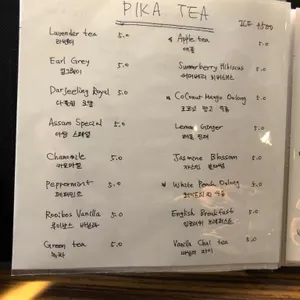 PIKA TEA
ICE +500
Lavender tea 5.0
라벤더
Earl Grey 5.0
얼그레이
Darjeeling Royal 5.0
다즐링 로얄
Assam Special 5.0
아쌈 스페셜
Chamomile 5.0
카모마일
Peppermint 5.0
페퍼민트
Rooibos Vanilla 5.0
루이보스 바닐라
Green tea 5.0
녹차
Apple tea 5.0
애플
Summerberry Hibiscus 5.0
썸머베리 히비스커스
Coconut Mango Oolong 5.0
코코넛 망고 우롱
Lemon Ginger 5.0
레몬 진저
Jasmine Blossom 5.0
자스민 블라썸
White Peach Oolong 5.0
English Breakfast 5.0
잉글리쉬 브렉퍼스트
Vanilla Chai tea 5.0
바닐라 차이